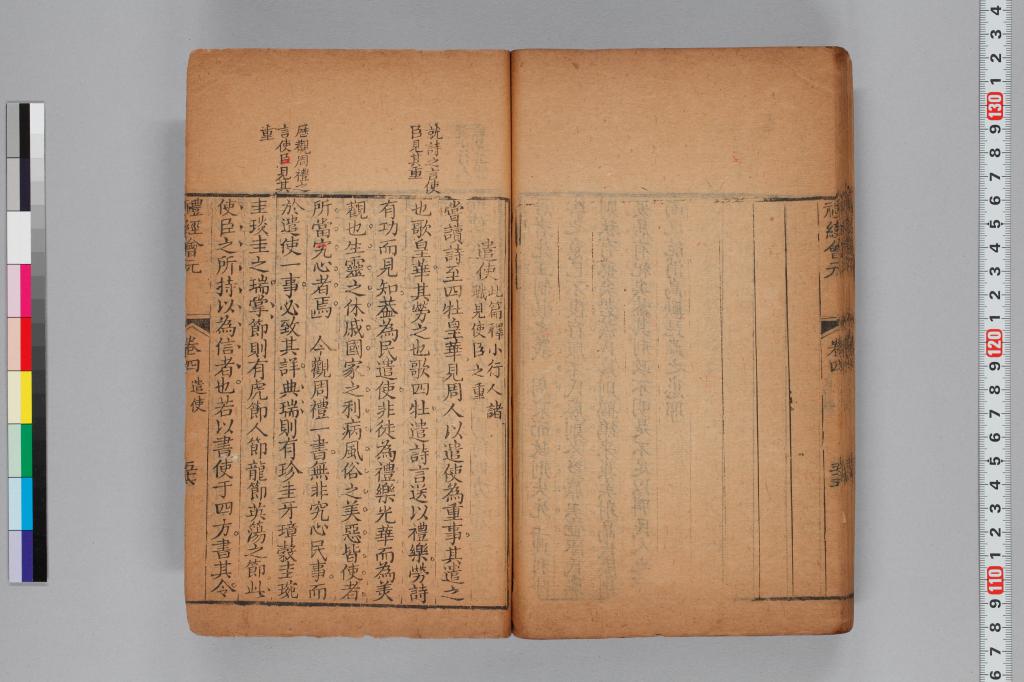 禮經會元
卷四
遣使 此篇釋小行人諸
職見使臣之重
嘗讀詩至四牡皇華見周人以遣使為重事其遣之
也歌皇華其勞之也歌四牡遣詩言送以禮樂勞詩
有功而見知葢為民遣使非徒為禮樂光華而為美
觀也生靈之休戚國家之利病風俗之美惡皆使者
所當究心者焉 今觀周禮一書無非究心民事而
於遣使一事必致其詳典瑞則有珍圭牙璋穀圭琬
圭琰圭之瑞掌節則有虎節人節龍節英蕩之節此
使臣之所持以為信者也若以書使于四方書其令
說詩之言使
臣見其重
歷觀周禮之
言使臣見其
重
禮經會元
卷四 遣使